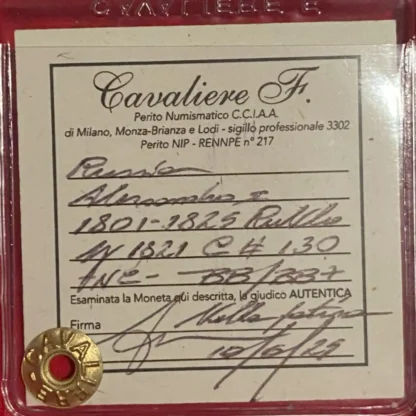 CAVALIERE F
Cavaliere F.
Perito Numismatico C.C.I.A.A.
di Milano, Monza-Brianza e Lodi - sigillo professionale 3302
Perito NIP - RENNPE n° 217
Russia
Alessandro I
1801-1825 Rublo
1821 C# 130
BB/
Esaminata la Moneta qui descritta, la giudico AUTENTICA
Firma
CAVALIERE